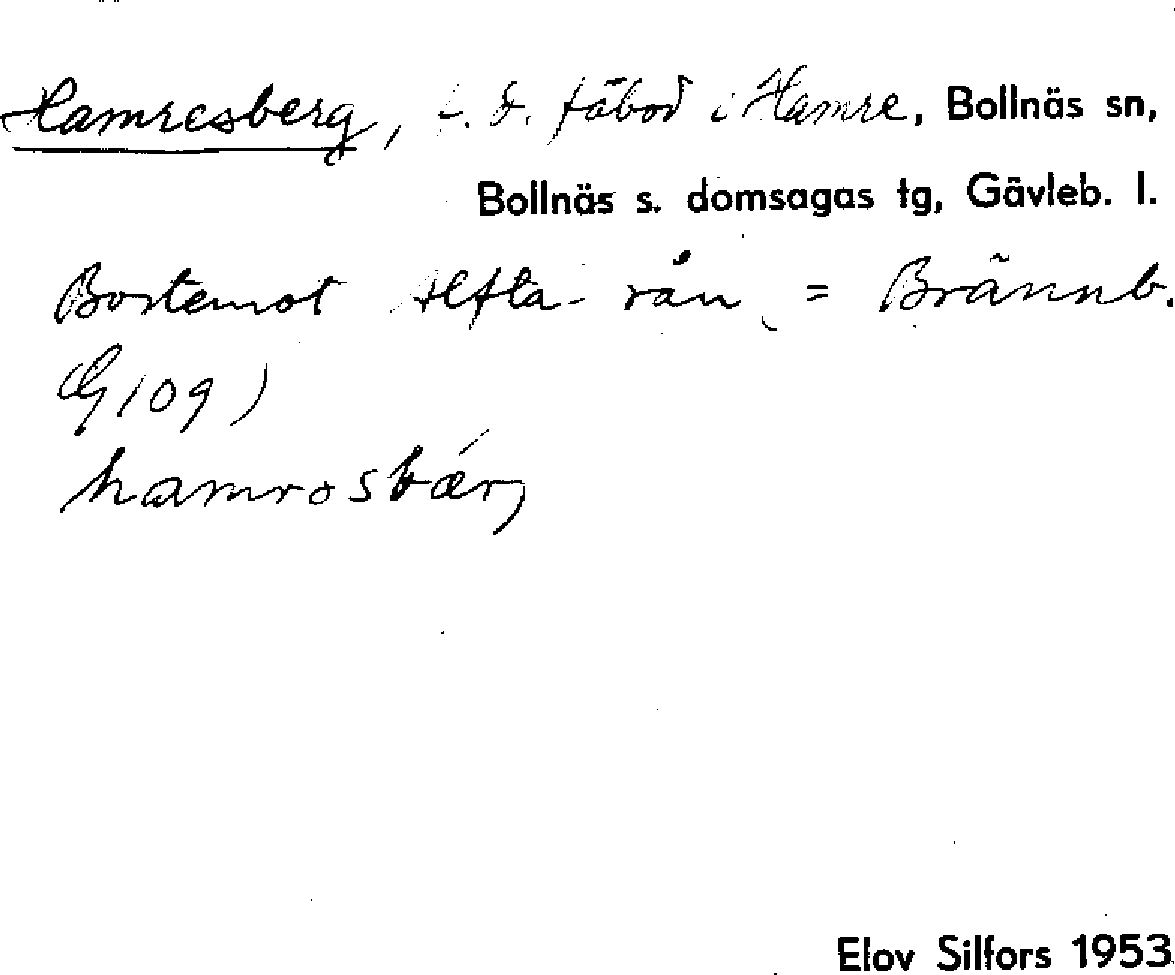 Hamresberg, f. d. fäbod i Hamre, Bollnäs sn,
Bollnäs s. domsagas tg, Gävleb. l.
Bortemot Alfta-rån (= Brännb.
G109)
hamrosbǽrj
Elov Silfors 1953